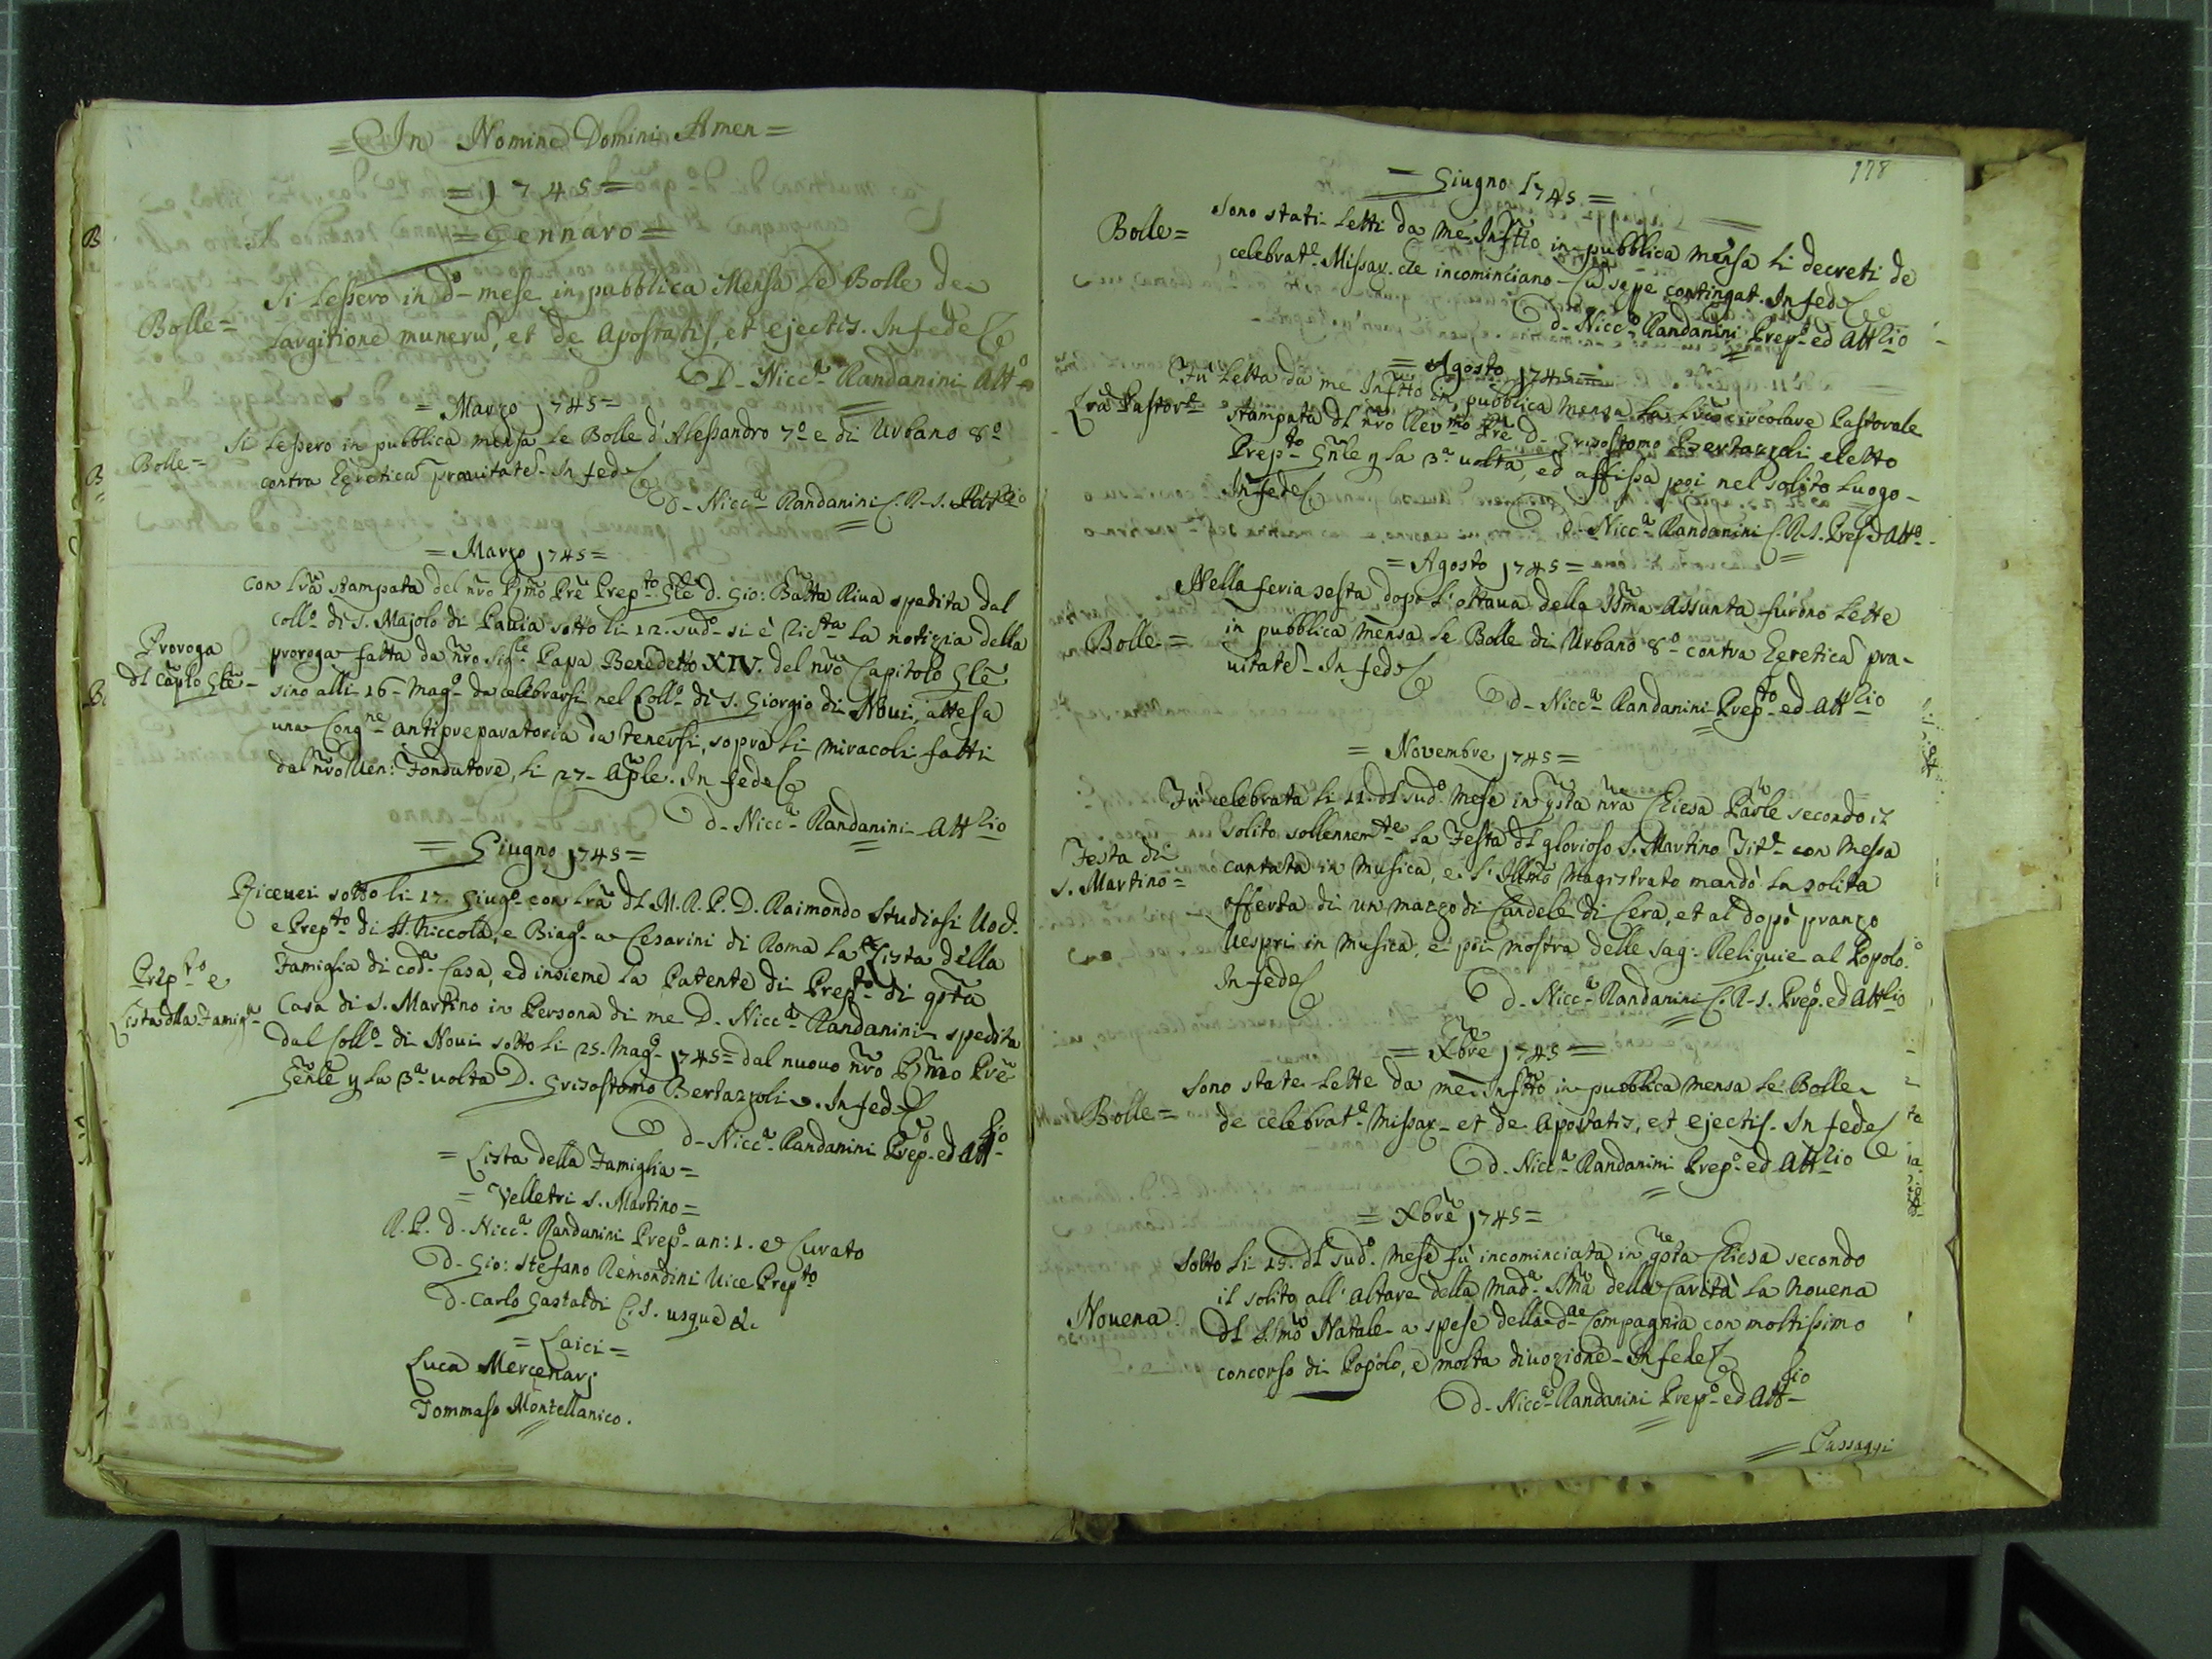 = In Nomine Domini Amen =
= 1745 =
= Gennaro =
Bolle =
Si lessero in d.o mese in pubblica Mensa le Bolle de
Largitione munerũ, et de Apostatis, et ejectis. In fede
D. Nicc.a Randanini Att.o
= Marzo 1745 =
Bolle =
Si lessero in pubblica mensa le Bolle d'Alessandro 7.o e di Urbano 8.o
contra Egreticã pravitatẽ. In fede
D. Nicc.a Randanini C.R.S.
= Marzo 1745 =
Proroga
dl Caplo Gle
Con lrã stampata del nrõ Rmõ Prẽ Prep.to Glẽ D. Gio: Batta Riva spedita dal
Coll.o di S. Majolo di Pavia sotto li 12. sud.o si è ric.ta la notizia della
proroga fatta da nrõ Sig.re Papa Benedetto XIV. del nrõ Capitolo Glẽ
sino alli 16. Mag.o da celebrarsi nel Coll.o di S. Giorgio di Novi, attesa
una Cong.ne antipreparatoria da tenersi, sopra li miracoli fatti
dal nrõ Ven: Fondatore, li 27. Aple. In fede
D. Nicc.a Randanini Att.rio
= Giugno 1745 =
Prep.to e
Lista dlla Famig.a
Ricevei sotto li 17. Giug.o con lrã dl M.R.P.D. Raimondo Studiosi Voc.
e Prep.to di SS. Niccola, e Biag.o a Cesarini di Roma la Lista della
Famiglia di cod.a Casa, ed insieme la Patente di Prep.to di qsta
Casa di S. Martino in Persona di me D. Nicc.a Randanini spedita
dal Coll.o di Novi sotto li 25. Mag.o 1745 = dal nuovo nrõ Rmõ Prẽ
Gẽnle p la 3.a volta D. Grisostomo Bertazzoli. In fede
D. Nicc.a Randanini Prep. ed Att.rio
= Lista della Famiglia =
= Velletri S. Martino =
R. P. D. Nicc.a Randanini Prep.o an: 1. e Curato
D. Gio: Stefano Remondini Vice Prep.to
D. Carlo Gastaldi C. S. usque &c
= Laici =
Luca Mercenarj
Tommaso Montellanico.
178
= Giugno 1745 =
Bolle =
Sono stati letti da me Infrtto in pubblica mensa li decreti de
celebrat.e Missar. che incominciano Cũ sepe contingat. In fede
D. Nicc.a Randanini Prep.o ed Att.rio
= Agosto 1745 =
Lrã Pastor.e
Fu letta da me Infrtto in pubblica mensa la Lrã circolare Pastorale
stampata dl nrõ Rev.mo Prẽ D. Grisostomo Bertazzoli eletto
Prep.to Gnle p la 3.a volta, ed affissa poi nel solito luogo.
In fede
D. Nicc.a Randanini C.R.S. Prep. ed Att.o
= Agosto 1745 =
Bolle =
Nella feria sesta dopo l'ottava della SSma Assunta furono lette
in pubblica mensa le Bolle di Urbano 8.o contra Egreticã pra-
vitatẽ. In fede
D. Nicc.a Randanini Prep.to ed Att.rio
= Novembre 1745 =
Festa di
S. Martino =
Fu celebrata li 11. dl sud.o mese in qsta nrã Chiesa Parle secondo il
solito sollennem.te la Festa dl glorioso S. Martino Tit.e con messa
cantata in musica, e l'Illmõ Magistrato mandò la solita
offerta di un mazzo di Candele di Cera, et al dopo pranzo
Vespri in musica, e poi mostra delle Sag: Reliquie al Popolo.
In fede
D. Nicc.a Randanini C.R.S. Prep.o ed Att.rio
= Xbrẽ 1745 =
Bolle =
Sono state lette da me Infrtto in pubblica mensa le Bolle
de celebrat.e Missar. et de Apostatis, et ejectis. In fede
D. Nicc.a Randanini Prep.o ed Att.rio
= Xbrẽ 1745 =
Novena.
Sotto li 15. dl sud.o mese fu incominciata in qsta Chiesa secondo
il solito all'altare della Mad.a SSma della Carità la novena
dl SSmo Natale a spese della d.a Compagnia con moltissimo
concorso di Popolo, e molta divozione. In fede
D. Nicc.a Randanini Prep.o ed Att.rio
= Passaggi